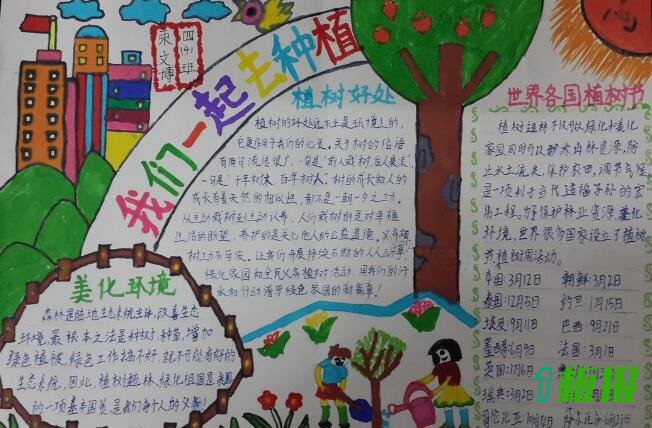 四(4)班
宋文博
我们一起去种植
植树好处
植树的好处远不止是环境上的,
它更作用于我们的心灵。关于树的俗语
有两句流传很广,一句是"前人栽树,后人乘凉",
一句是"十年树木,百年树人"。树的成长和人的
成长有着天然的相似性,都不是一朝一夕之功。
从主动栽树到主动认养,人们栽树的是对幸福
生活的盼望,养护的是关心他人的公益道德。义务植
树上功不可没。让我们开展持续不断的人人动手
绿化家园和全民义务植树活动,用我们的汗
水和行动谱写绿色家园的新篇章!
美化环境
森林是陆地生态系统主体,改善生态
环境,最根本之法是种树、种草,增加
绿色植被,绿色工作搞不好,就不可能有好的
生态系统,因此,植树造林,绿化祖国是我国
的一项基本国策,是我们每个人的义务!
世界各国植树节
植树造林不仅可以绿化和美化
家园,同时可以扩大山林资源,防
止水土流失,保护农田,调节气候,
是一项利于当代造福子孙的宏
伟工程,为了保护林业资源,美化
环境,世界很多国家设立了植树
节植树周活动。
中国:3月12日 朝鲜:3月2日
泰国:12月5日 约旦:1月15日
埃及:9月11日 巴西:9月21日
墨西哥:6月9日 法国:3月1日
英国:1月6日
瑞典:3月2日
哥伦比亚:10月12日
1板报